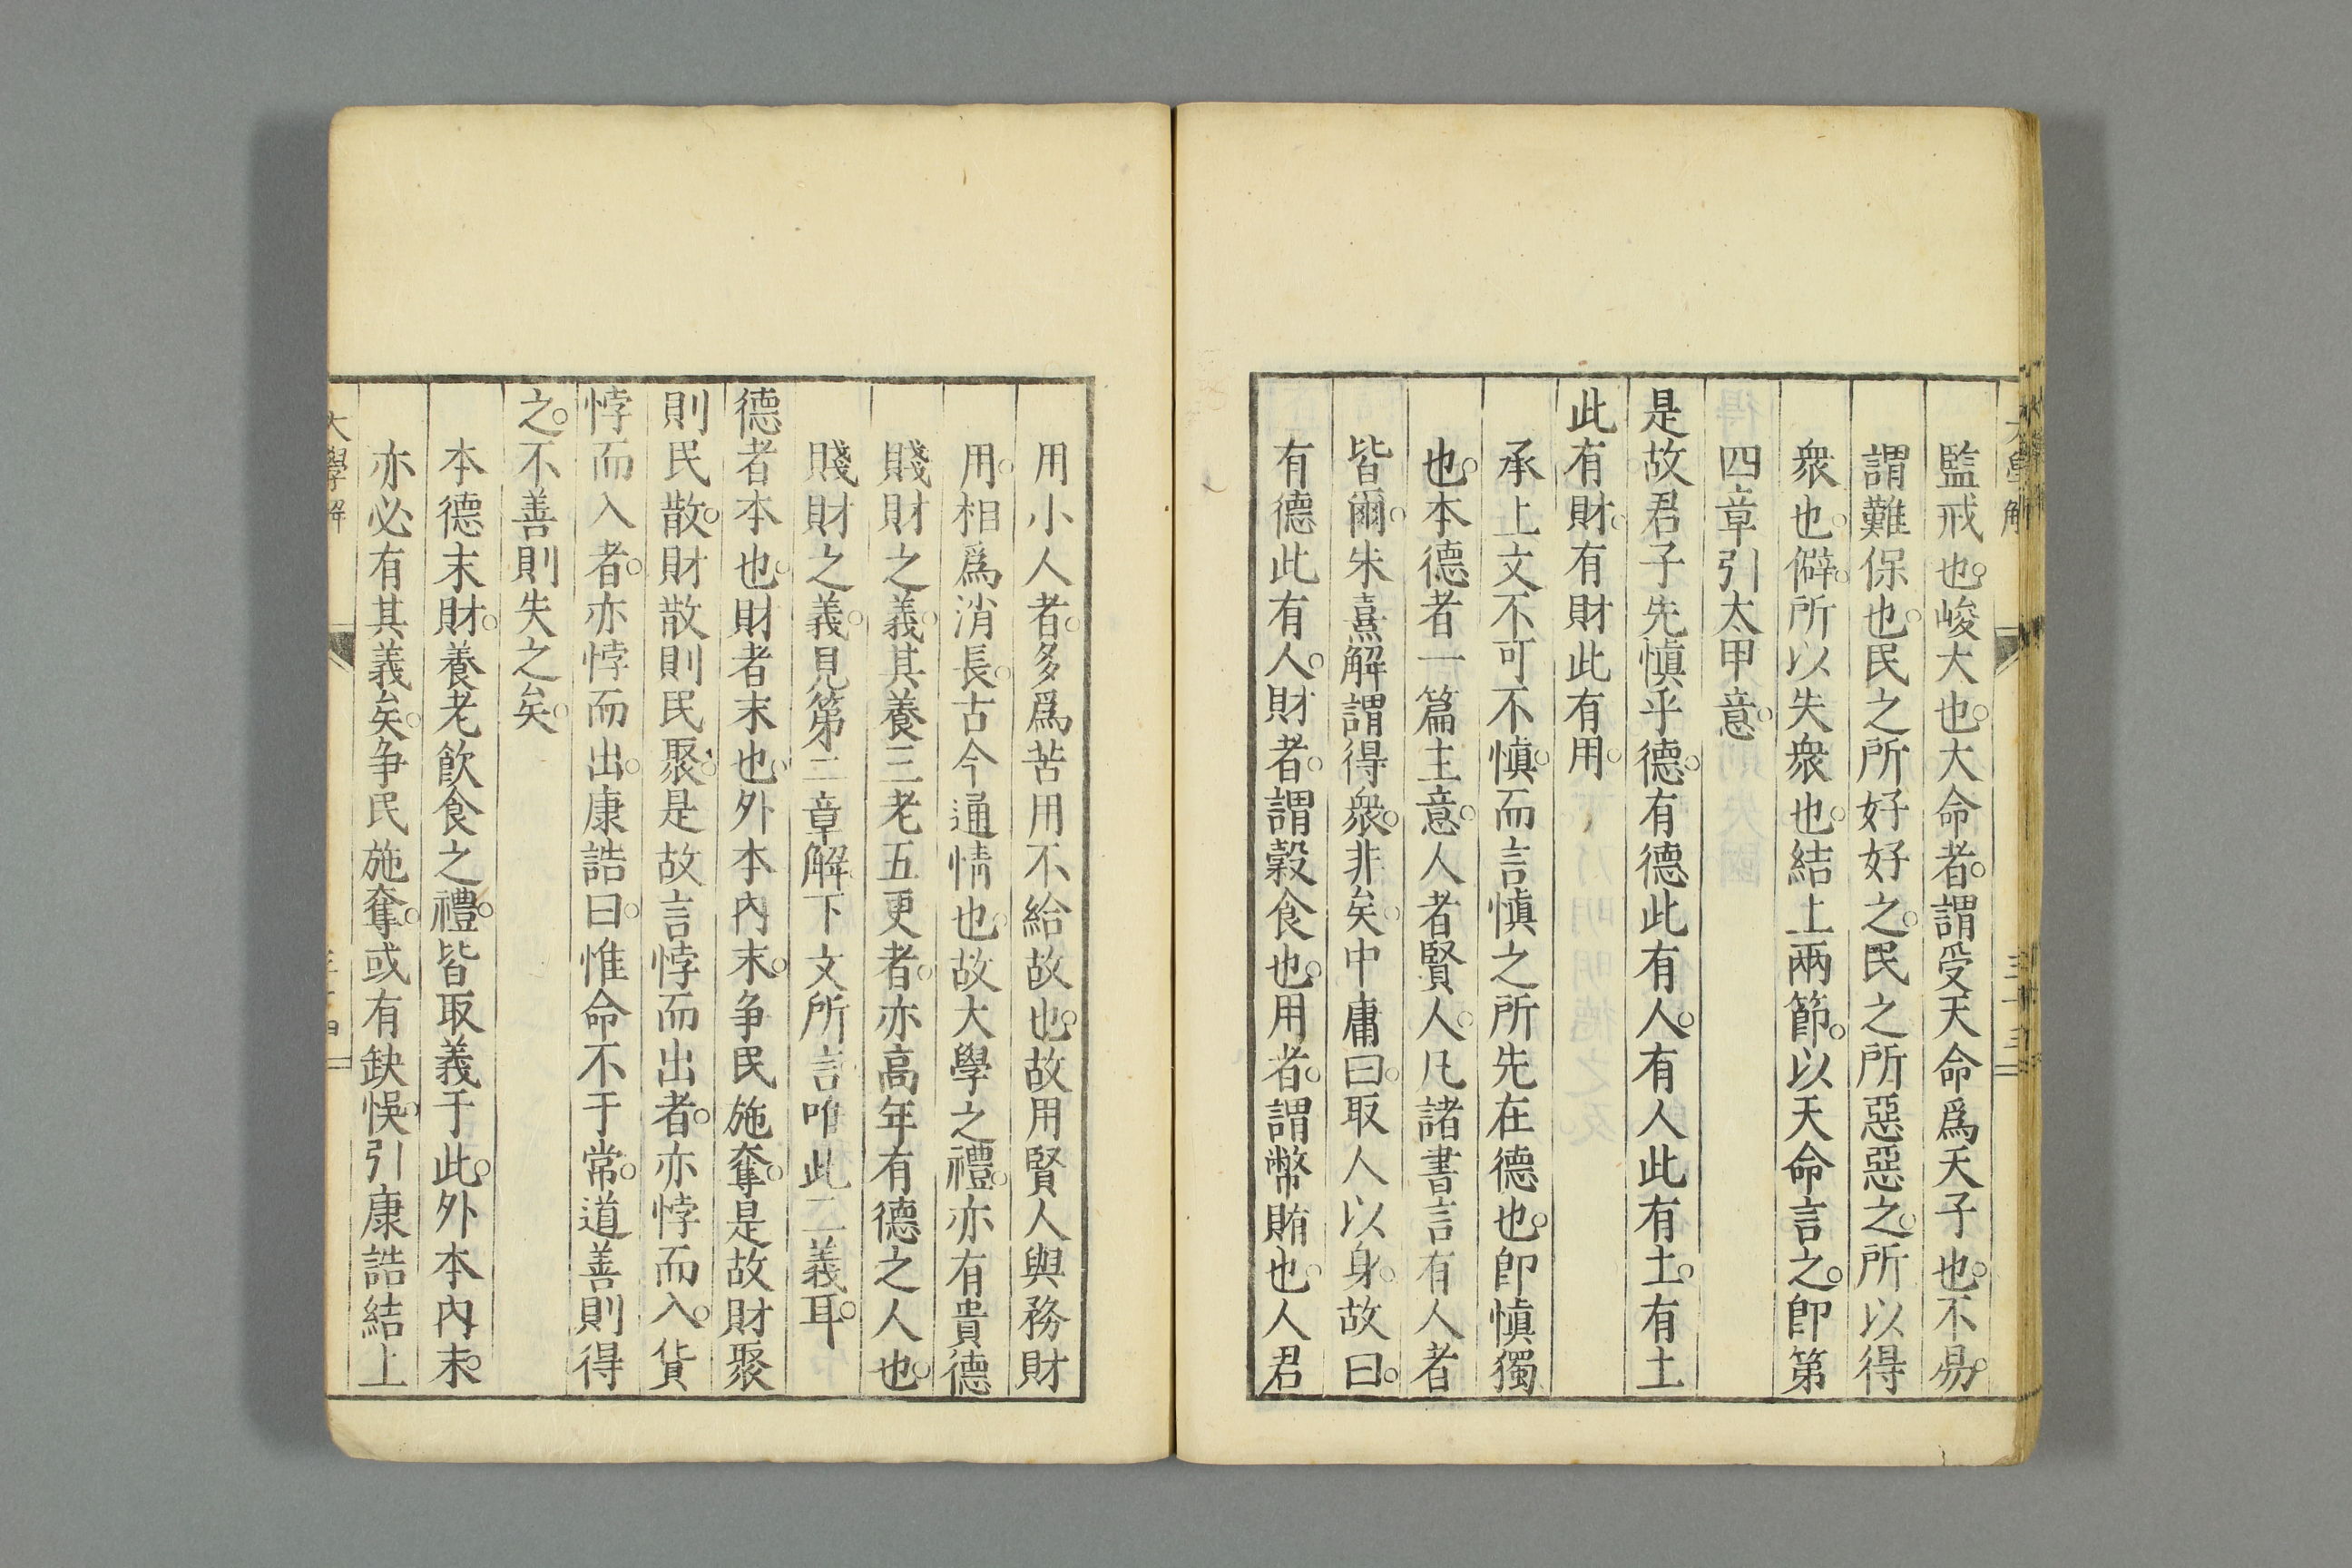 大學解
監戒也。峻大也。大命者。謂受天命爲天子也。不易。
謂難保也。民之所好好之。民之所惡惡之。所以得
衆也。僻。所以失衆也。結上兩節。以天命言之。卽第
四章引太甲意。
是故君子先愼乎德。有德此有人。有人此有土。有土
此有財。有財此有用。
承上文不可不愼。而言愼之所先在德也。卽愼獨
也。本德者一篇主意。人者賢人。凡諸書言有人者
皆爾。朱熹解謂得衆。非矣。中庸曰。取人以身。故曰。
有德此有人。財者。謂穀食也。用者。謂幣賄也。人君
用小人者。多爲苦用不給故也。故用賢人與務財
用。相爲消長。古今通情也。故大學之禮。亦有貴德
賤財之義。其養三老五更者。亦高年有德之人也。
賤財之義。見第二章解。下文所言唯此二義耳。
德者本也。財者末也。外本內末。争民施奪。是故財聚
則民散。財散則民聚。是故言悖而出者。亦悖而入。貨
悖而入者。亦悖而出。康誥曰。惟命不于常。道善則得
之。不善則失之矣。
本德末財。養老飲食之禮。皆取義于此。外本內末。
亦必有其義矣。争民施奪。或有缺悞。引康誥結上
大學解